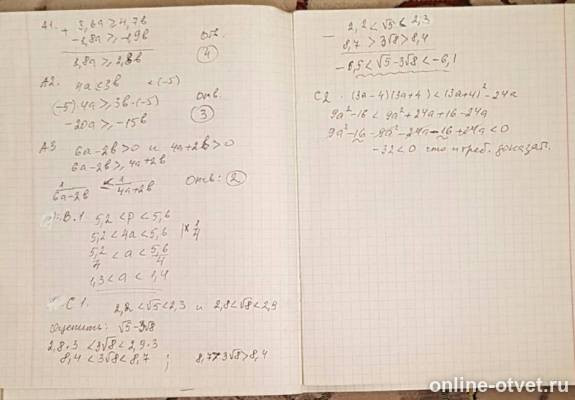 А1. + 3,6a ≥ 4,7b
-1,8a ≥ -1,9b Отв.
1,8a ≥ 2,8b ④
А2. 4a ≤ 3b ·(-5)
(-5)·4a ≥ 3b·(-5) Отв.
-20a ≥ -15b ③
А3 6a-2b>0 и 4a+2b>0
6a-2b ≥ 4a+2b
1/(6a-2b) ≤ 1/(4a+2b) Отв: ②
В.1 5,2 < P < 5,6
5,2 < 4a < 5,6 | × 1/4
5,2/4 < a < 5,6/4
1,3 < a < 1,4
С1. 2,2<√5<2,3 и 2,8<√8<2,9
Оценить: √5-3√8
2,8·3 < 3√8 < 2,9·3
8,4 < 3√8 < 8,7 ; 8,7>3√8>8,4
- 2,2 < √5 < 2,3
8,7 > 3√8 > 8,4
-6,5 < √5-3√8 < -6,1
С2. (3a-4)(3a+4) < (3a+4)²-24a
9a²-16 < 9a²+24a+16-24a
9a²-16-9a²-24a-16+24a<0
-32<0 что и треб. доказат.
online-otvet.ru